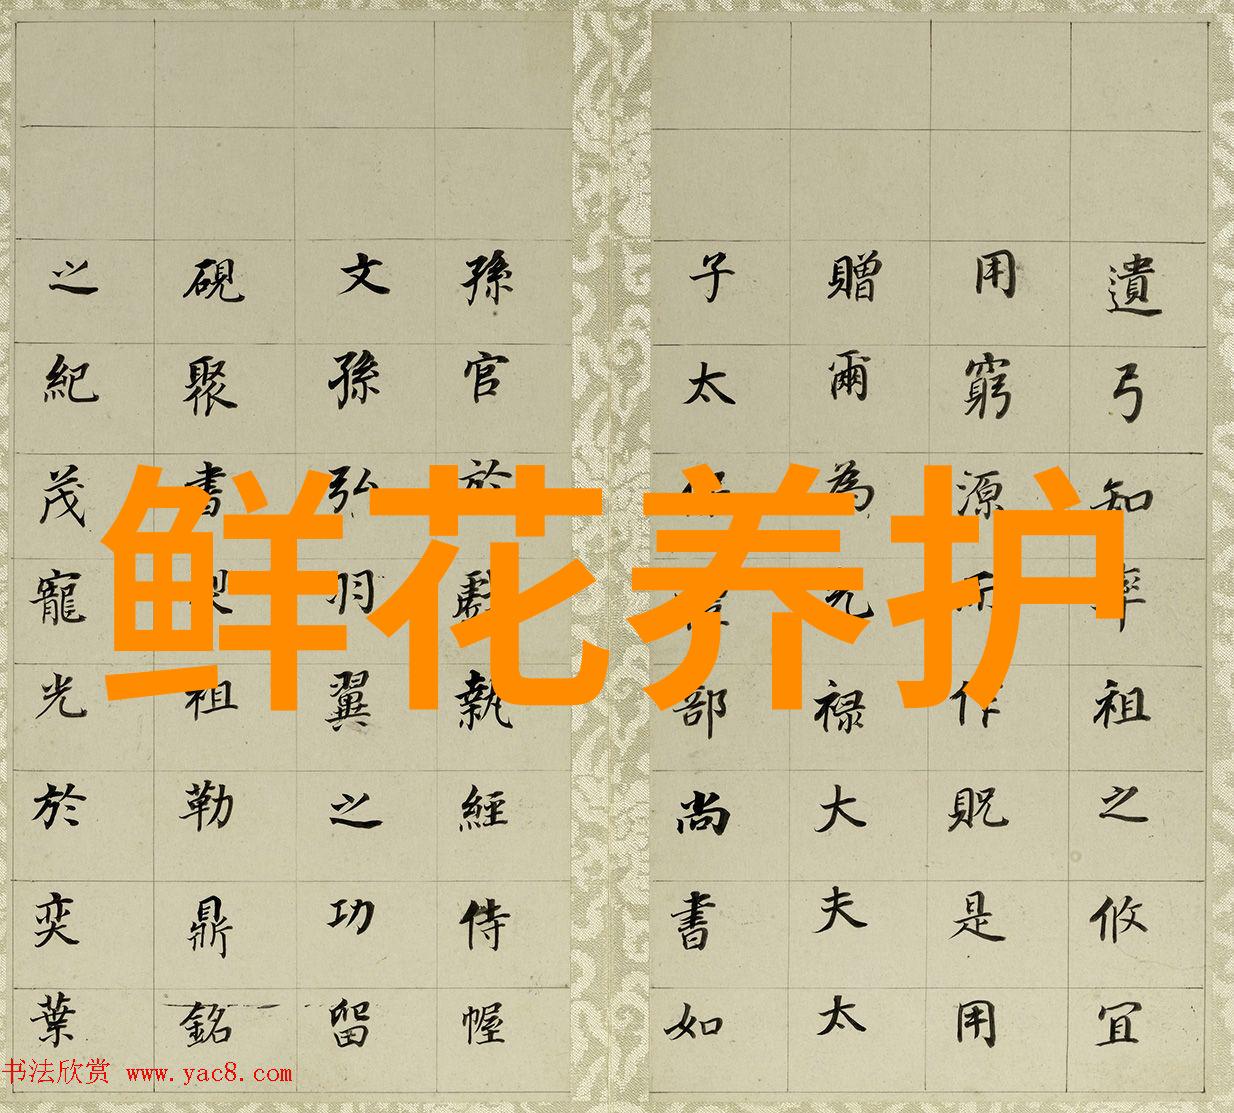 遺弓知率祖之攸冝
用窮源而作貺是用
贈爾為光禄大夫太
子太保部尚書如
孫官於執經侍幄
文孫弘羽翼之功留
硯聚書祖勒鼎銘
之紀茂寵光於奕葉
鲜花养护
书法欣赏 www.yac8.com